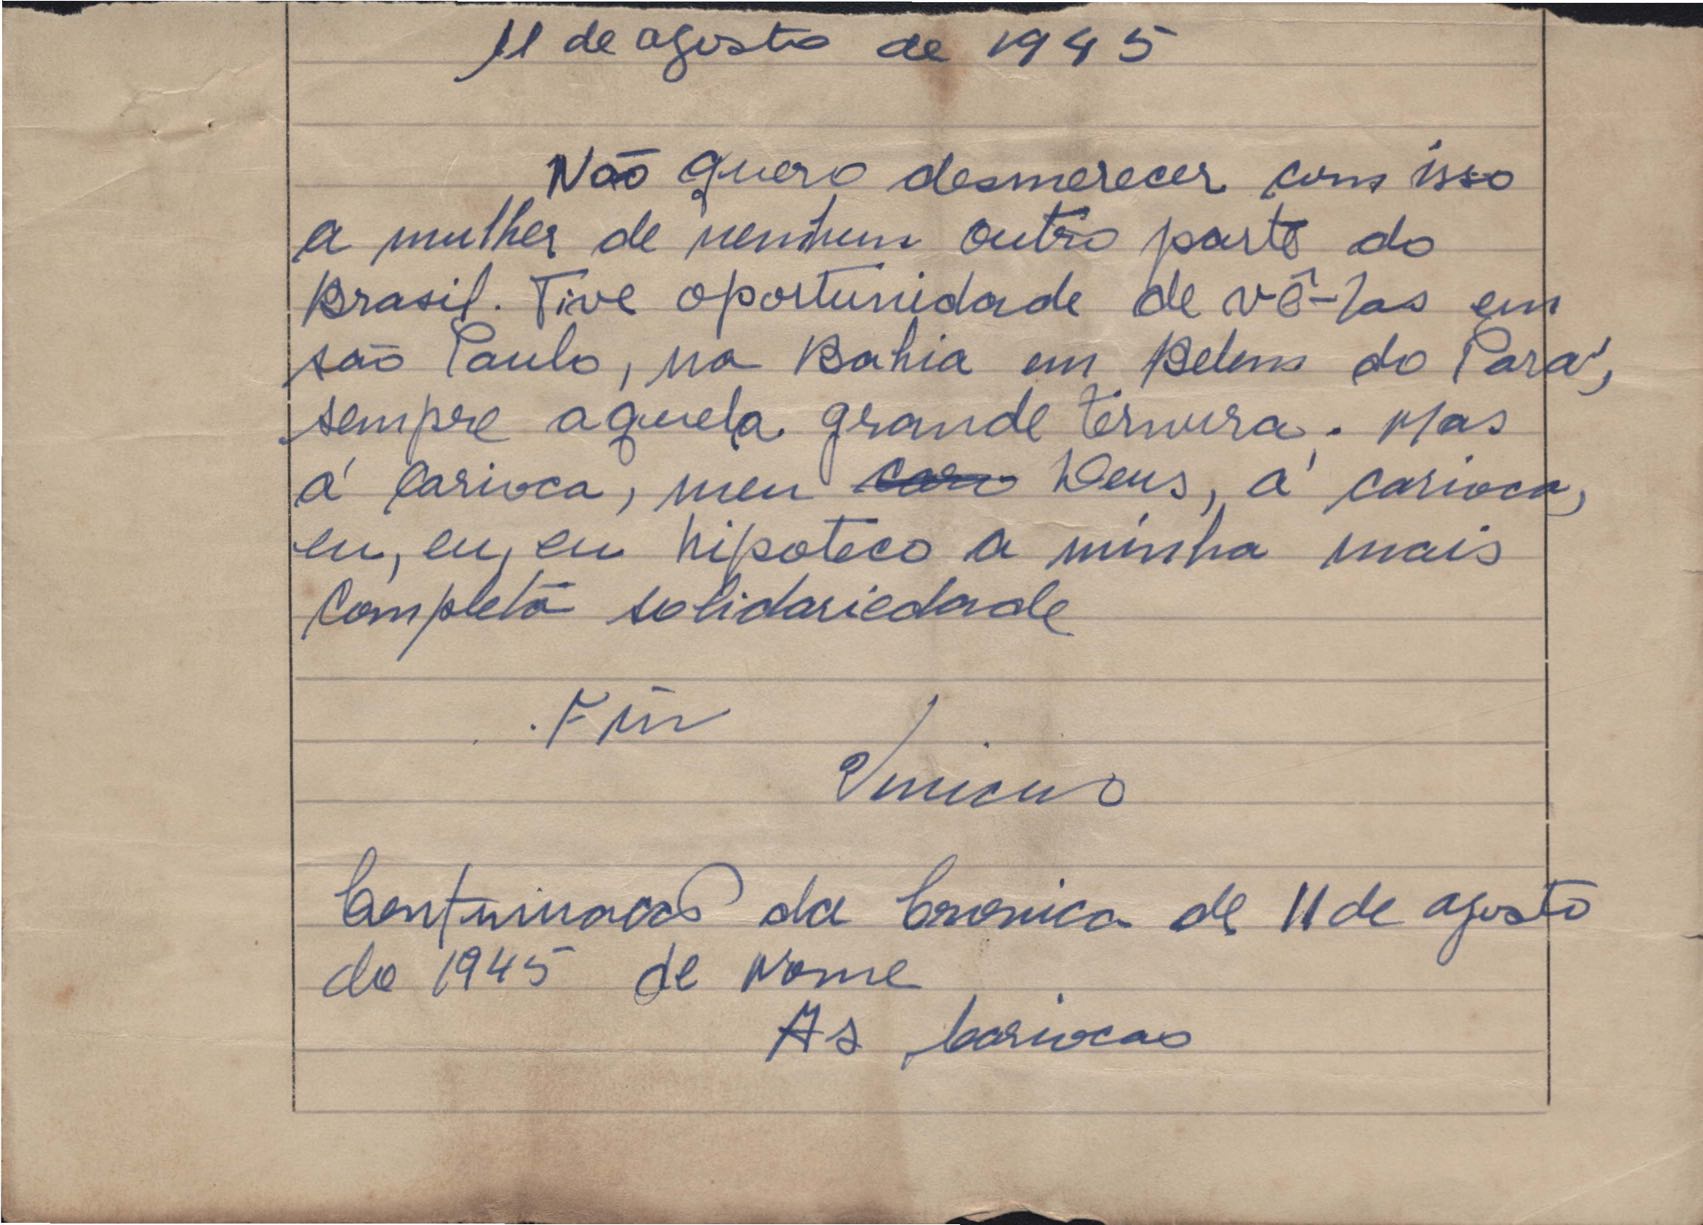 11 de agosto de 1945
Não quero desmerecer com isso
a mulher de nenhum outro parte do
Brasil. Tive oportunidade de vê-las em
são Paulo, na Bahia em Belem do Pará,
sempre aquela grande ternura. Mas
á carioca, meu caro Deus, á carioca,
eu, eu, eu hipoteco a minha mais
completa solidariedade
. Fim
Vinicius
Continuacão da Cronica de 11 de agosto
do 1945 de Nome
As Cariocas